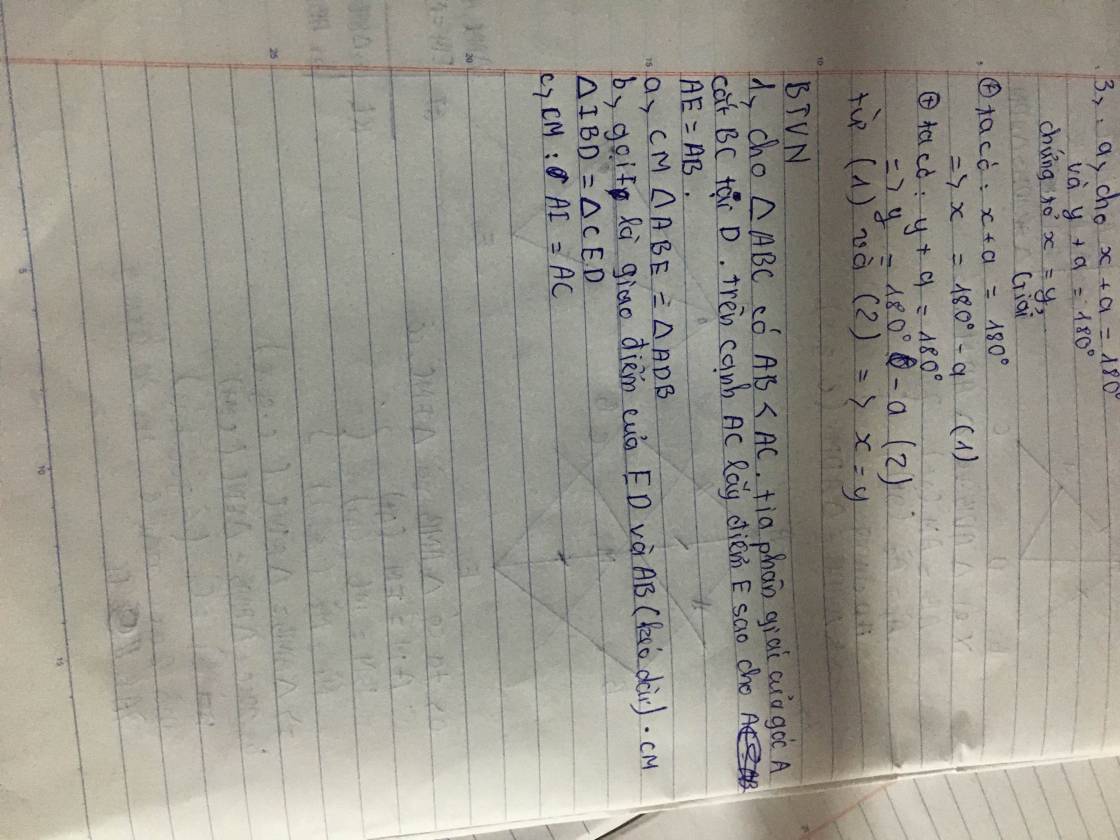 3,. a, cho x + a = 180°
và y + a = 180°
chứng tỏ x = y,
Giải
⊕ ta có: x + a = 180°
=> x = 180° - a (1)
⊕ ta có: y + a = 180°
=> y = 180° - a (2)
từ (1) và (2) => x = y
BTVN
1, cho △ ABC có AB < AC. tia phân giác của góc A
cắt BC tại D. trên cạnh AC lấy điểm E sao cho
AE = AB.
a, CM △ ABE = △ ADB
b, gọi I là giao điểm của ED và AB (kéo dài). CM
△ IBD = △ CED
c, CM: AI = AC